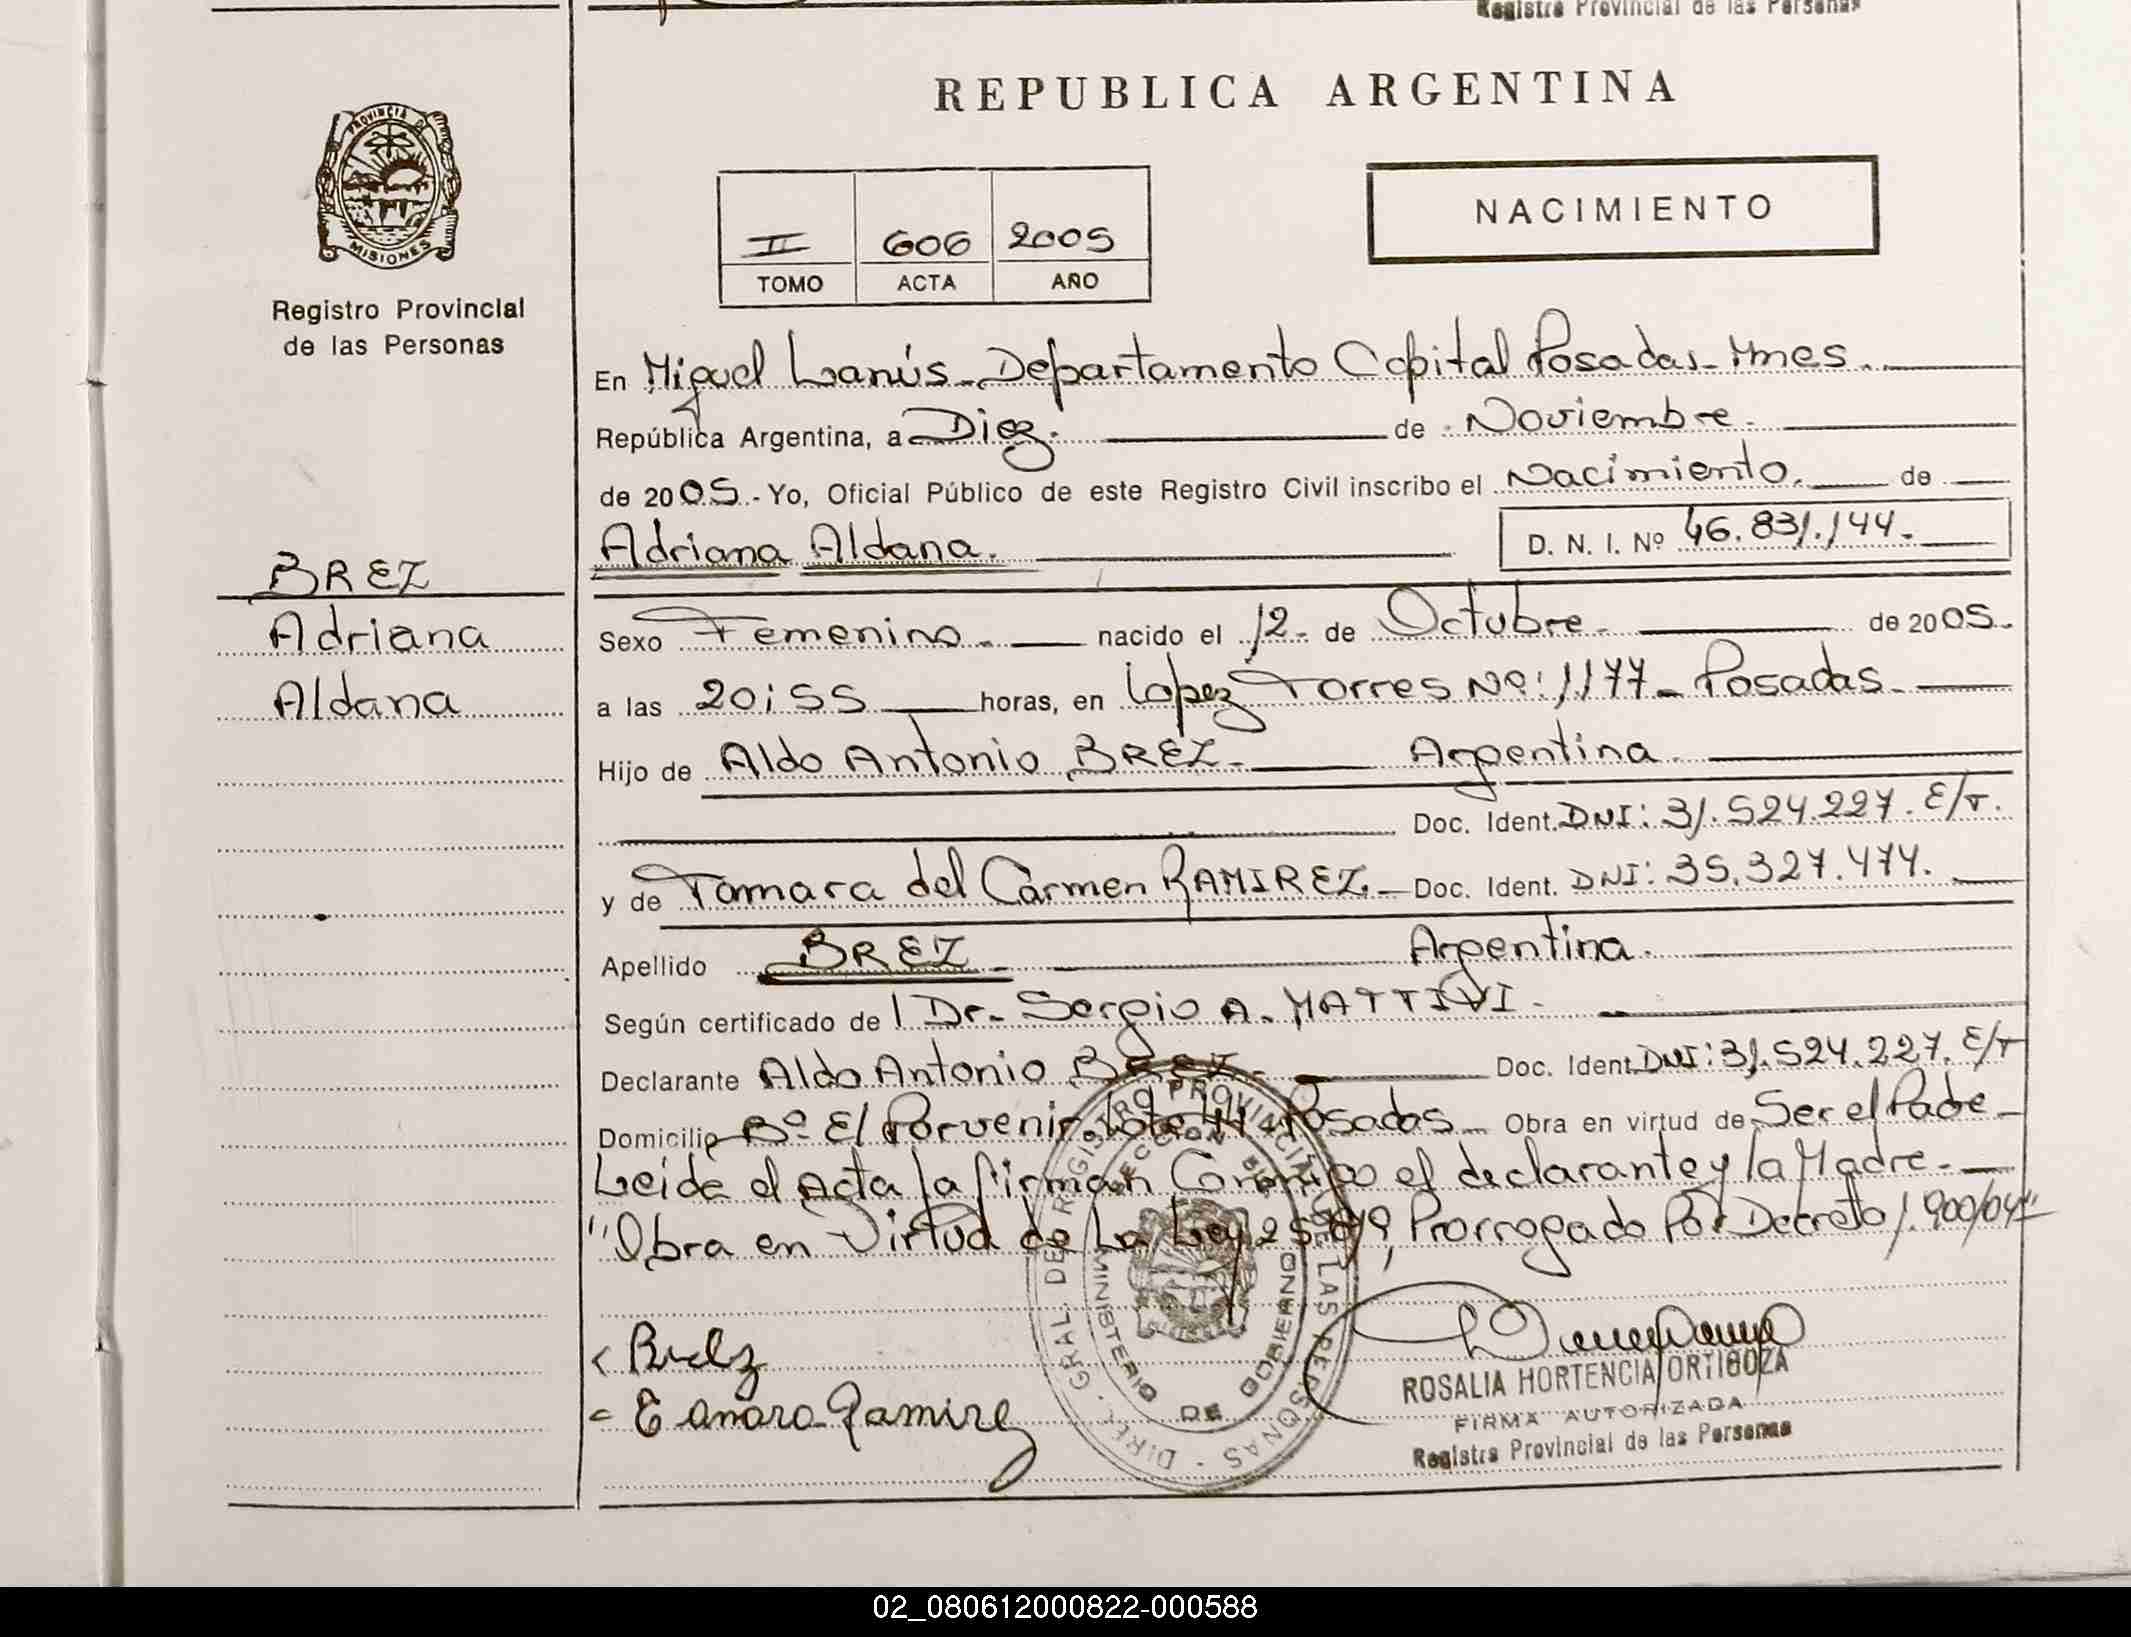 Registro Provincial de las Personas
REPUBLICA ARGENTINA
PROVINCIA DE
MISIONES
NACIMIENTO
II 606 2005
TOMO ACTA AÑO
Registro Provincial
de las Personas
En Miguel Lanús - Departamento Capital Posadas - Mnes.
República Argentina, a Diez. de Noviembre.
de 2005.- Yo, Oficial Público de este Registro Civil inscribo el Nacimiento. de
Adriana Aldana. D. N. I. Nº 46.831.144.
BREZ
Adriana
Aldana
Sexo Femenino. nacido el 12 - de Octubre - de 2005.
a las 20:55 horas, en Lopez Torres Nº: 1177 - Posadas -
Hijo de Aldo Antonio BREZ - Argentina.
Doc. Ident. DNI: 31.524.227. E/T.
y de Tamara del Carmen RAMIREZ. - Doc. Ident. DNI: 35.327.474.
Apellido BREZ - Argentina.
Según certificado de Dr. Sergio A. MATTIVI -
Declarante Aldo Antonio BREZ - Doc. Ident. DNI: 31.524.227. E/T
Domicilio Bº El Porvenir Lote Posadas - Obra en virtud de Ser el Padre -
Leida el Acta la firman Conmigo el declarante y la Madre -
"Obra en Virtud de La Ley Prorrogado Por Decreto 1.900/04"
DIREC. GRAL. DEL REGISTRO PROVINCIAL DE LAS PERSONAS
MINISTERIO DE GOBIERNO
Brez
Tamara Ramirez
ROSALIA HORTENCIA ORTIGOZA
FIRMA AUTORIZADA
Registro Provincial de las Personas
02_080612000822-000588